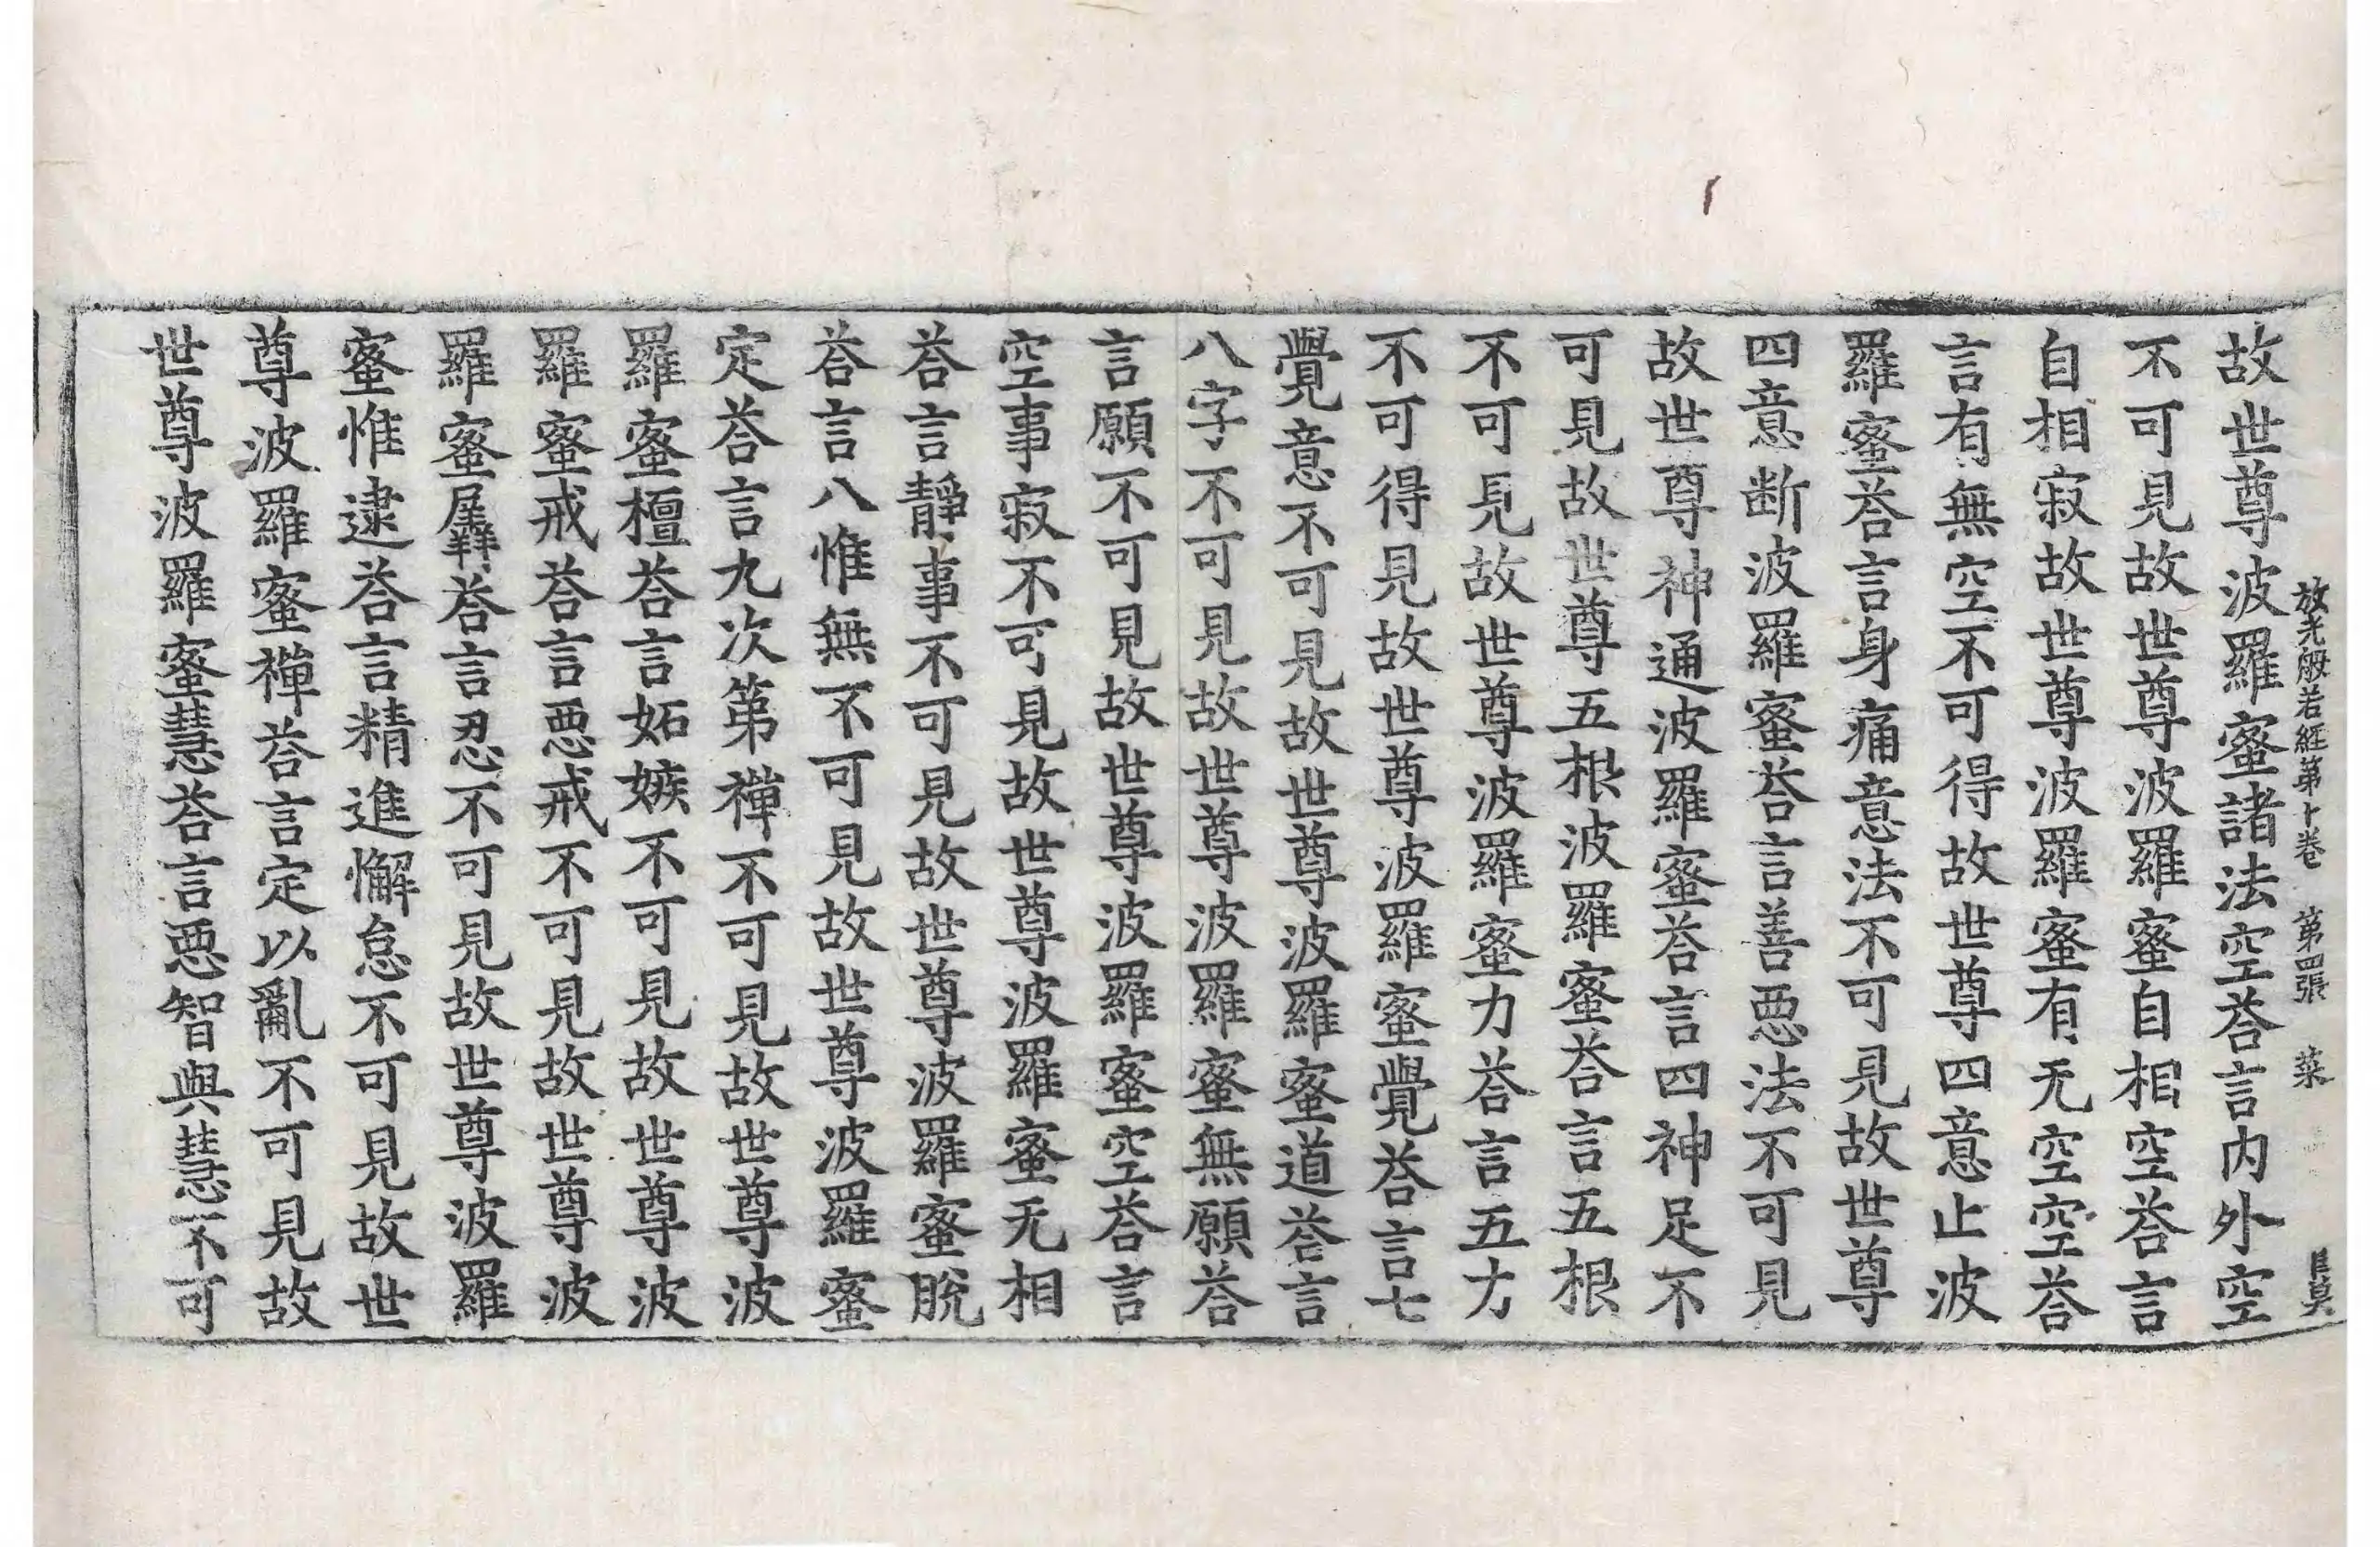 放光般若経第十卷 第四張 菜
故世尊波羅蜜諸法空荅言内外空
不可見故世尊波羅蜜自相空荅言
自相寂故世尊波羅蜜有无空空荅
言有無空不可得故世尊四意止波
羅蜜荅言身痛意法不可見故世尊
四意断波羅蜜荅言善惡法不可見
故世尊神通波羅蜜荅言四神足不
可見故世尊五根波羅蜜荅言五根
不可見故世尊波羅蜜力荅言五力
不可得見故世尊波羅蜜覺荅言七
覺意不可見故世尊波羅蜜道荅言
八字不可見故世尊波羅蜜無願荅
言願不可見故世尊波羅蜜空荅言
空事寂不可見故世尊波羅蜜无相
荅言靜事不可見故世尊波羅蜜脫
荅言八惟無不可見故世尊波羅蜜
定荅言九次第禪不可見故世尊波
羅蜜檀荅言妬嫉不可見故世尊波
羅蜜戒荅言惡戒不可見故世尊波
羅蜜羼荅言忍不可見故世尊波羅
蜜惟逮荅言精進懈怠不可見故世
尊波羅蜜禪荅言定以亂不可見故
世尊波羅蜜慧荅言惡智與慧不可